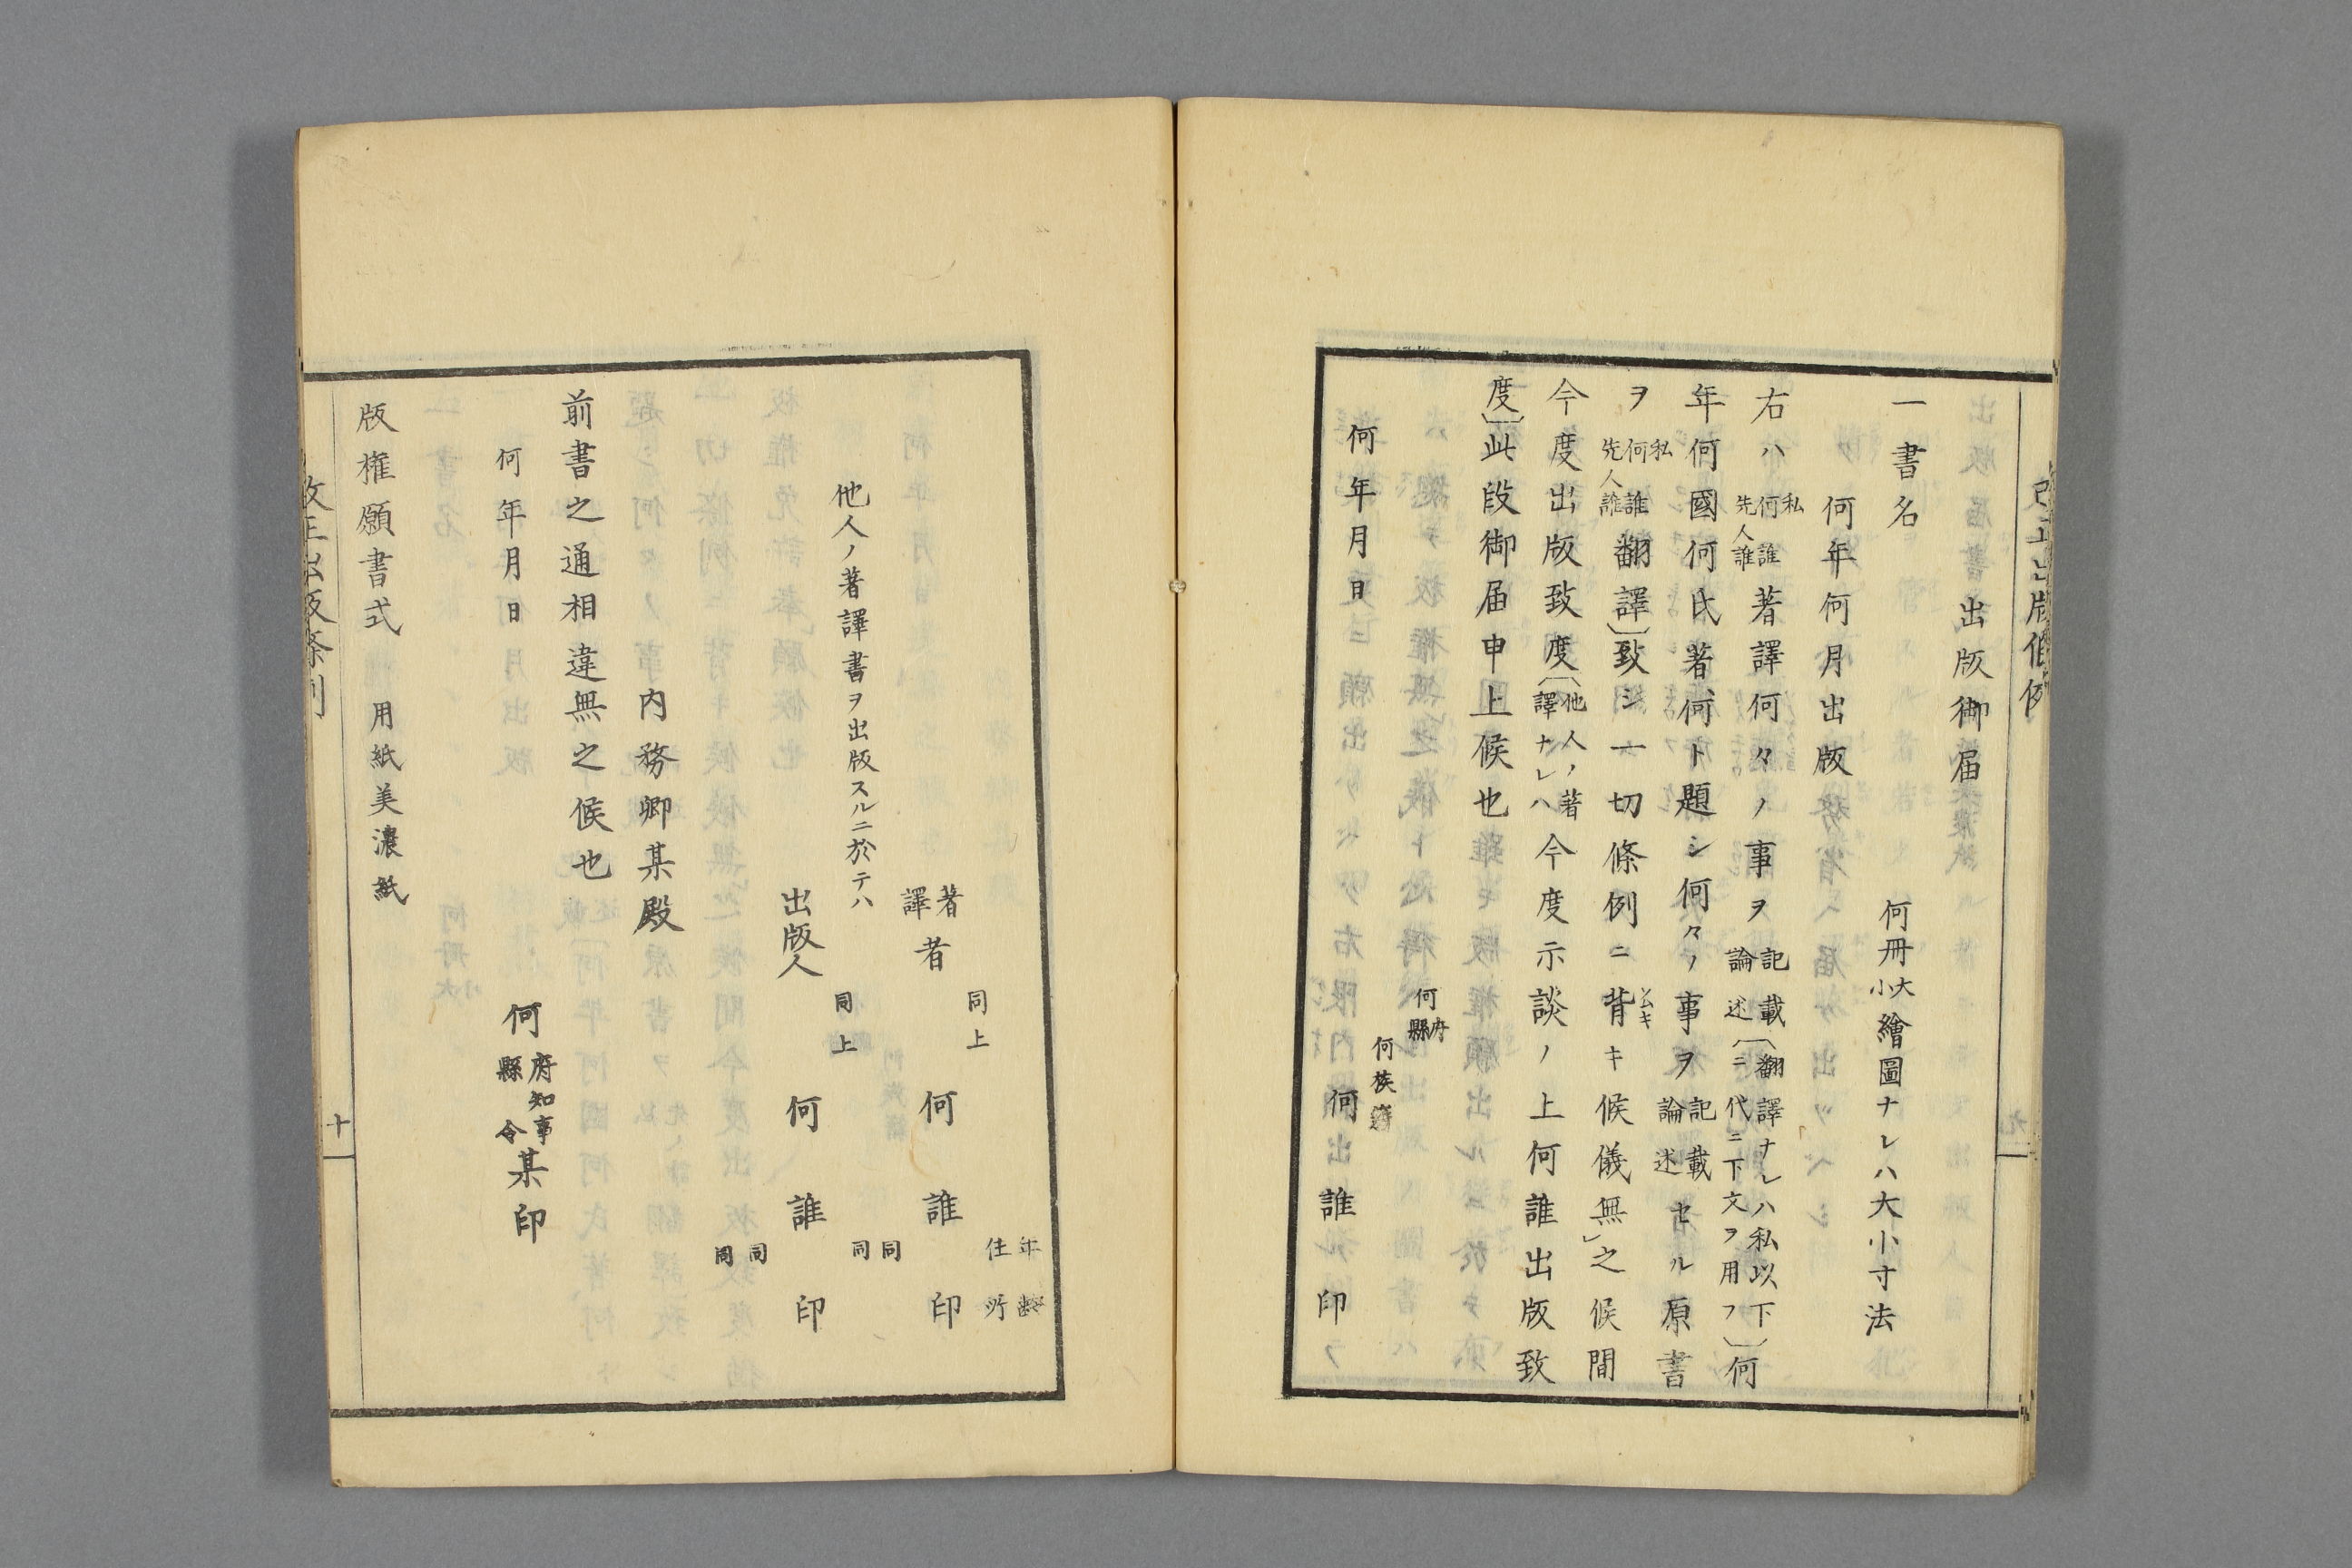 出版御届
一書名
何冊大小繪圖ナレハ大小寸法
何年何月出版
右ハ私何誰先人誰著譯何々ノ事ヲ記載論述〔翻譯ナレハ私以下ニ代ニ下文ヲ用フ〕何
年何國何氏著何ト題シ何々ノ事ヲ記載論述セル原書
ヲ私何誰先人誰翻譯〕致シ一切條例ニ背ソムキキ候儀無之候間
今度出版致度〔他人ノ著譯ナレハ今度示談ノ上何誰出版致
度〕此段御届申上候也
何府縣
何族
何年月日
何誰印
年齡
住所
同上
著譯者
何誰印
同
同
他人ノ著譯書ヲ出版スルニ於テハ
同上
出版人
何誰印
同
同
内務卿某殿
前書之通相違無之候也
何年月日
何府知事縣令某印
版権願書式
用紙美濃紙
十